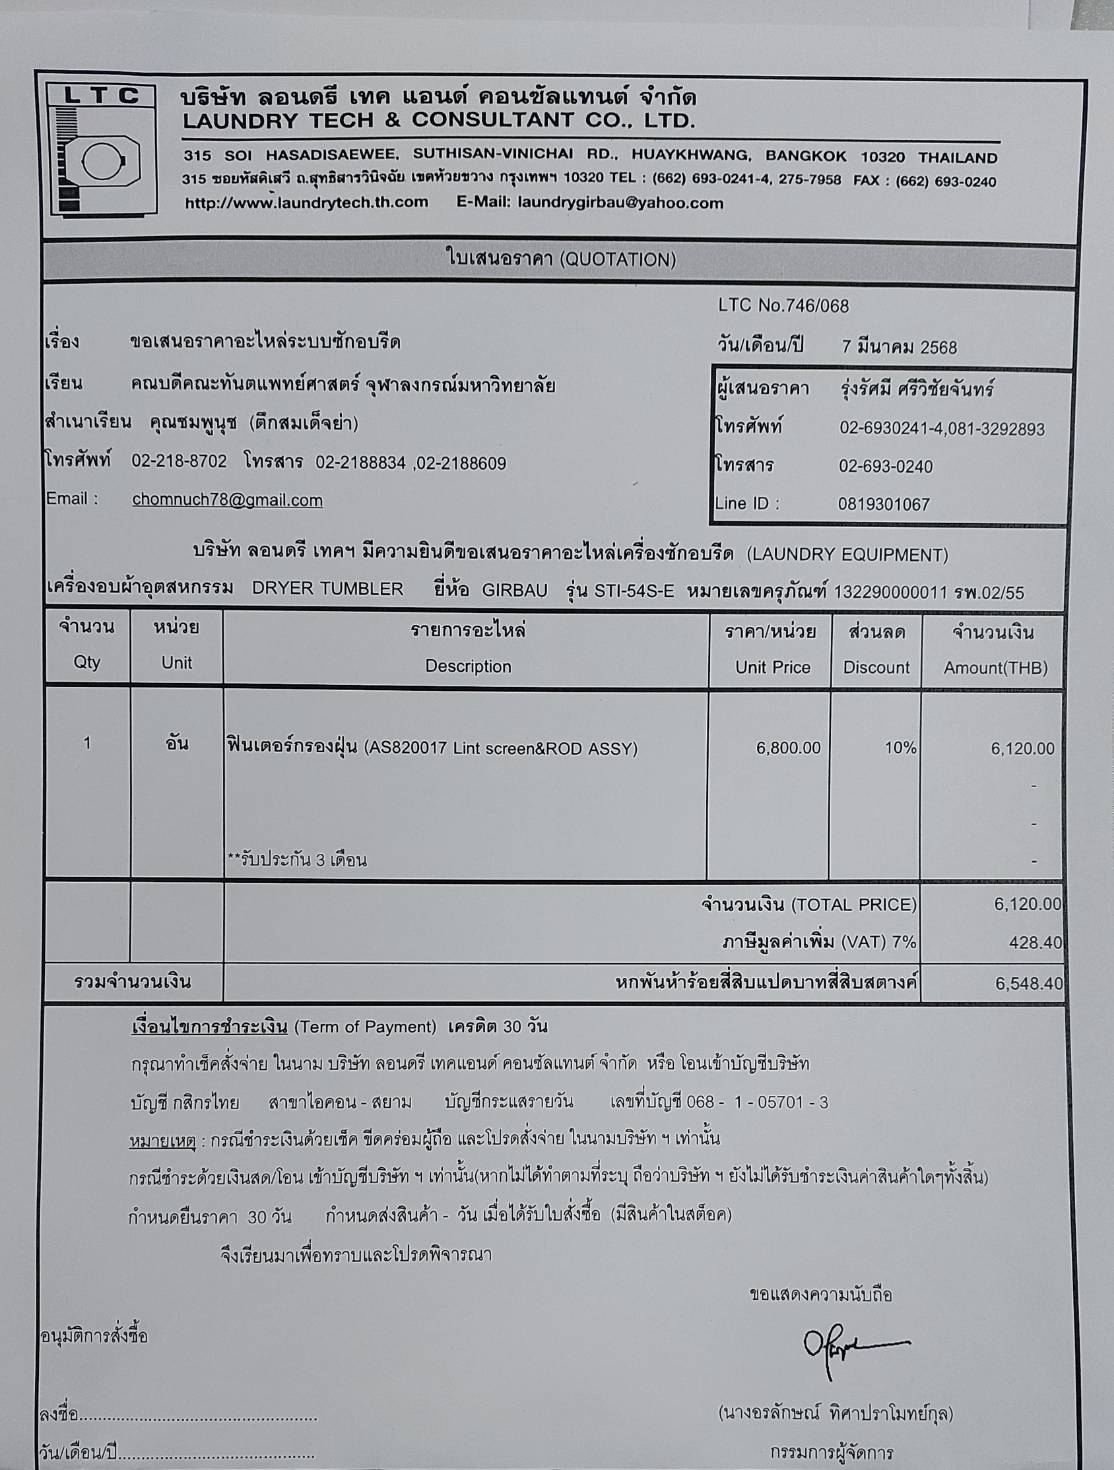 LTC
บริษัท ลอนดรี เทค แอนด์ คอนซัลแทนต์ จำกัด
LAUNDRY TECH & CONSULTANT CO., LTD.
315 SOI HASADISAEWEE, SUTHISAN-VINICHAI RD., HUAYKHWANG, BANGKOK 10320 THAILAND
315 ซอยหัสดิเสวี ถ.สุทธิสารวินิจฉัย เขตห้วยขวาง กรุงเทพฯ 10320 TEL : (662) 693-0241-4, 275-7958 FAX : (662) 693-0240
http://www.laundrytech.th.com E-Mail: laundrygirbau@yahoo.com
ใบเสนอราคา (QUOTATION)
LTC No.746/068
เรื่อง ขอเสนอราคาอะไหล่ระบบซักอบรีด วัน/เดือน/ปี 7 มีนาคม 2568
เรียน คณบดีคณะทันตแพทย์ศาสตร์ จุฬาลงกรณ์มหาวิทยาลัย ผู้เสนอราคา รุ่งรัศมี ศรีวิชัยจันทร์
สำเนาเรียน คุณชมพูนุช (ตึกสมเด็จย่า) โทรศัพท์ 02-6930241-4,081-3292893
โทรศัพท์ 02-218-8702 โทรสาร 02-2188834 ,02-2188609 โทรสาร 02-693-0240
Email : chomnuch78@gmail.com Line ID : 0819301067
บริษัท ลอนดรี เทคฯ มีความยินดีขอเสนอราคาอะไหล่เครื่องซักอบรีด (LAUNDRY EQUIPMENT)
เครื่องอบผ้าอุตสหกรรม DRYER TUMBLER ยี่ห้อ GIRBAU รุ่น STI-54S-E หมายเลขครุภัณฑ์ 132290000011 รพ.02/55
จำนวน หน่วย รายการอะไหล่ ราคา/หน่วย ส่วนลด จำนวนเงิน
Qty Unit Description Unit Price Discount Amount(THB)
1 อัน ฟินเตอร์กรองฝุ่น (AS820017 Lint screen&ROD ASSY) 6,800.00 10% 6,120.00
-
-
**รับประกัน 3 เดือน -
จำนวนเงิน (TOTAL PRICE) 6,120.00
ภาษีมูลค่าเพิ่ม (VAT) 7% 428.40
รวมจำนวนเงิน หกพันห้าร้อยสี่สิบแปดบาทสี่สิบสตางค์ 6,548.40
เงื่อนไขการชำระเงิน (Term of Payment) เครดิต 30 วัน
กรุณาทำเช็คสั่งจ่าย ในนาม บริษัท ลอนดรี เทคแอนด์ คอนซัลแทนต์ จำกัด หรือ โอนเข้าบัญชีบริษัท
บัญชี กสิกรไทย สาขาไอคอน - สยาม บัญชีกระแสรายวัน เลขที่บัญชี 068 - 1 - 05701 - 3
หมายเหตุ : กรณีชำระเงินด้วยเช็ค ขีดคร่อมผู้ถือ และโปรดสั่งจ่าย ในนามบริษัท ฯ เท่านั้น
กรณีชำระด้วยเงินสด/โอน เข้าบัญชีบริษัท ฯ เท่านั้น(หากไม่ได้ทำตามที่ระบุ ถือว่าบริษัท ฯ ยังไม่ได้รับชำระเงินค่าสินค้าใดๆทั้งสิ้น)
กำหนดยืนราคา 30 วัน กำหนดส่งสินค้า - วัน เมื่อได้รับใบสั่งซื้อ (มีสินค้าในสต็อค)
จึงเรียนมาเพื่อทราบและโปรดพิจารณา
ขอแสดงความนับถือ
อนุมัติการสั่งซื้อ
ลงชื่อ.................................................... (นางอรลักษณ์ ทิศาปราโมทย์กุล)
วัน/เดือน/ปี........................................... กรรมการผู้จัดการ